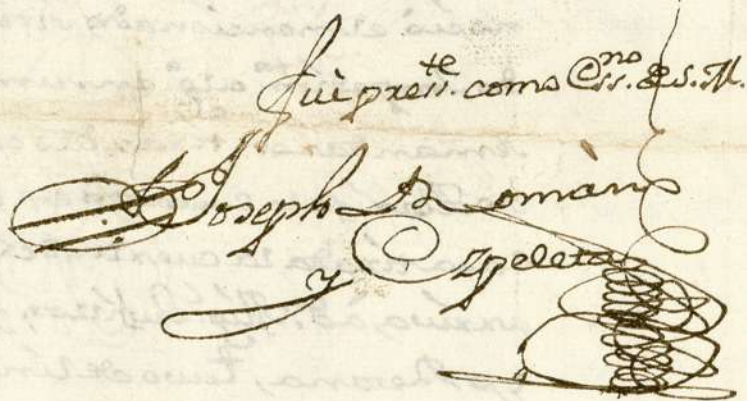 Fui presᵗᵉ. como Essⁿᵒ. de S. M.
Joseph Román
y Ezpeleta